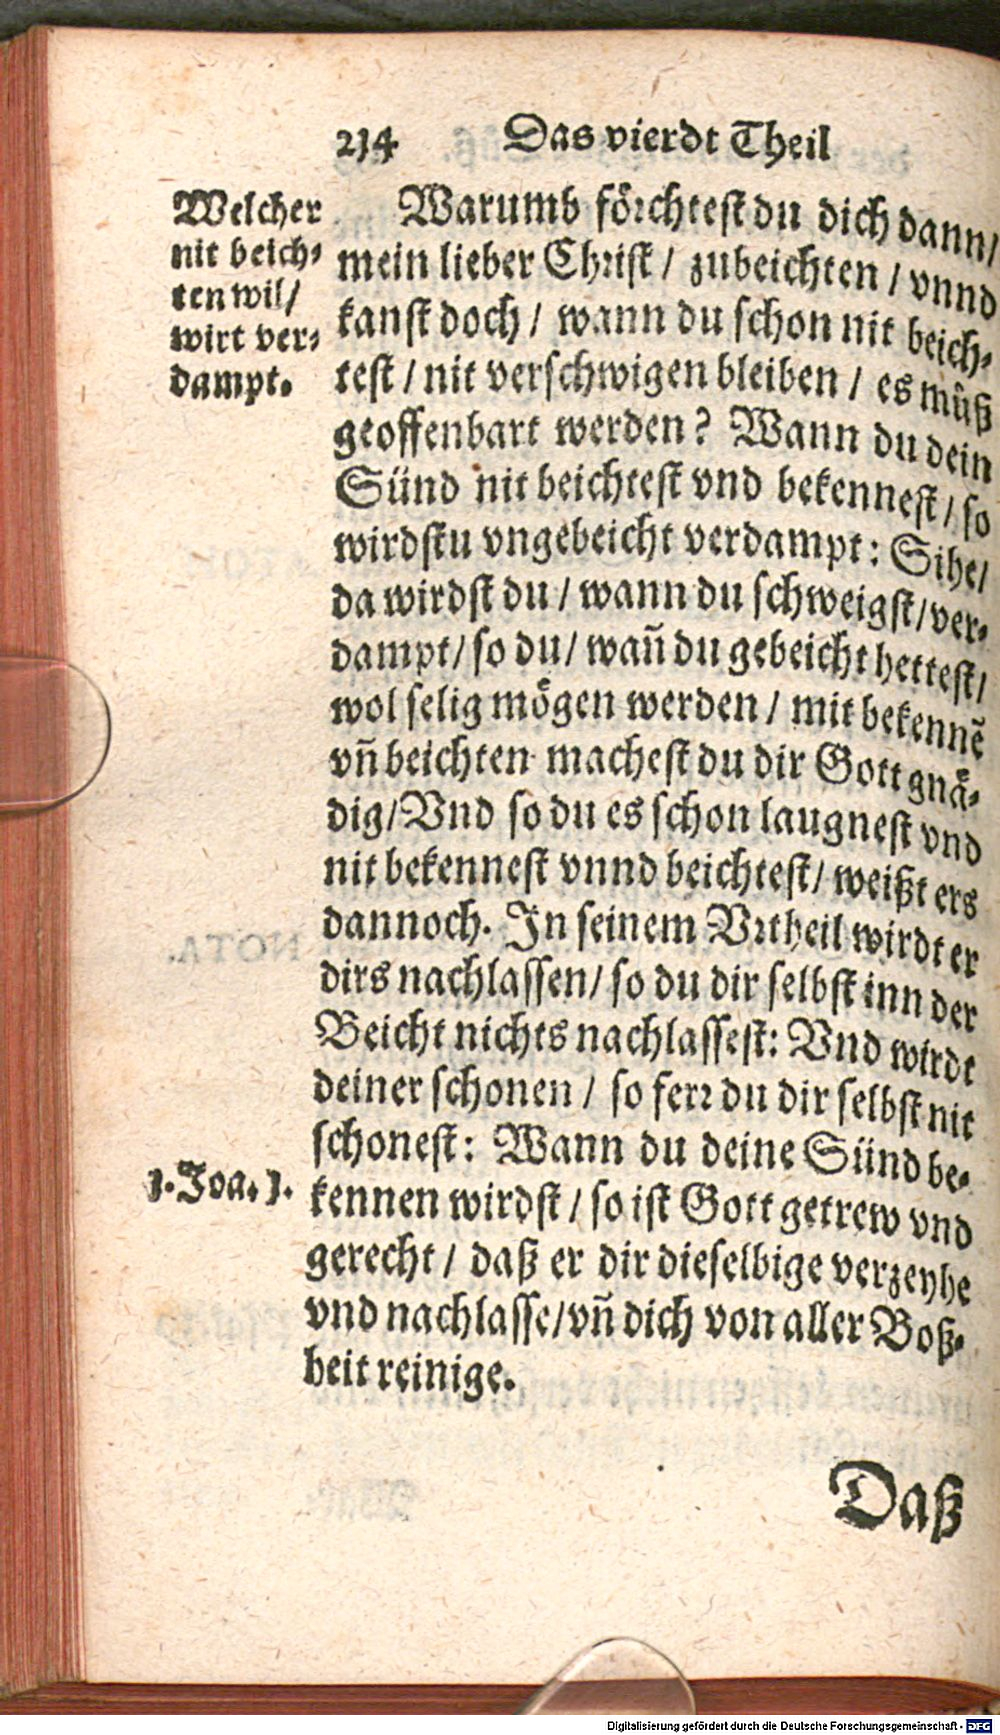 214 Das vierdt Theil
Welcher
nit beich⸗
ten wil/
wirt ver⸗
dampt.
Warumb förchtest du dich dann/
mein lieber Christ / zubeichten / vnnd
kanst doch / wann du schon nit beich⸗
test / nit verschwigen bleiben / es můß
geoffenbart werden? Wann du dein
Sünd nit beichtest vnd bekennest / so
wirdstu vngebeicht verdampt: Sihe/
da wirdst du / wann du schweigst/ver⸗
dampt/ so du/ wañ du gebeicht hettest/
wol selig mögen werden / mit bekennẽ
vñ beichten machest du dir Gott gnä⸗
dig/Vnd so du es schon laugnest vnd
nit bekennest vnnd beichtest/ weißt ers
dannoch. In seinem Vrtheil wirdt er
dirs nachlassen/ so du dir selbst inn der
Beicht nichts nachlassest: Vnd wirdt
deiner schonen / so ferr du dir selbst nit
schonest: Wann du deine Sünd be⸗
1.Joa.1.
kennen wirdst / so ist Gott getrew vnd
gerecht / daß er dir dieselbige verzeyhe
vnd nachlasse/vñ dich von aller Boß⸗
heit reinige.
Daß
Digitalisierung gefördert durch die Deutsche Forschungsgemeinschaft - DFG